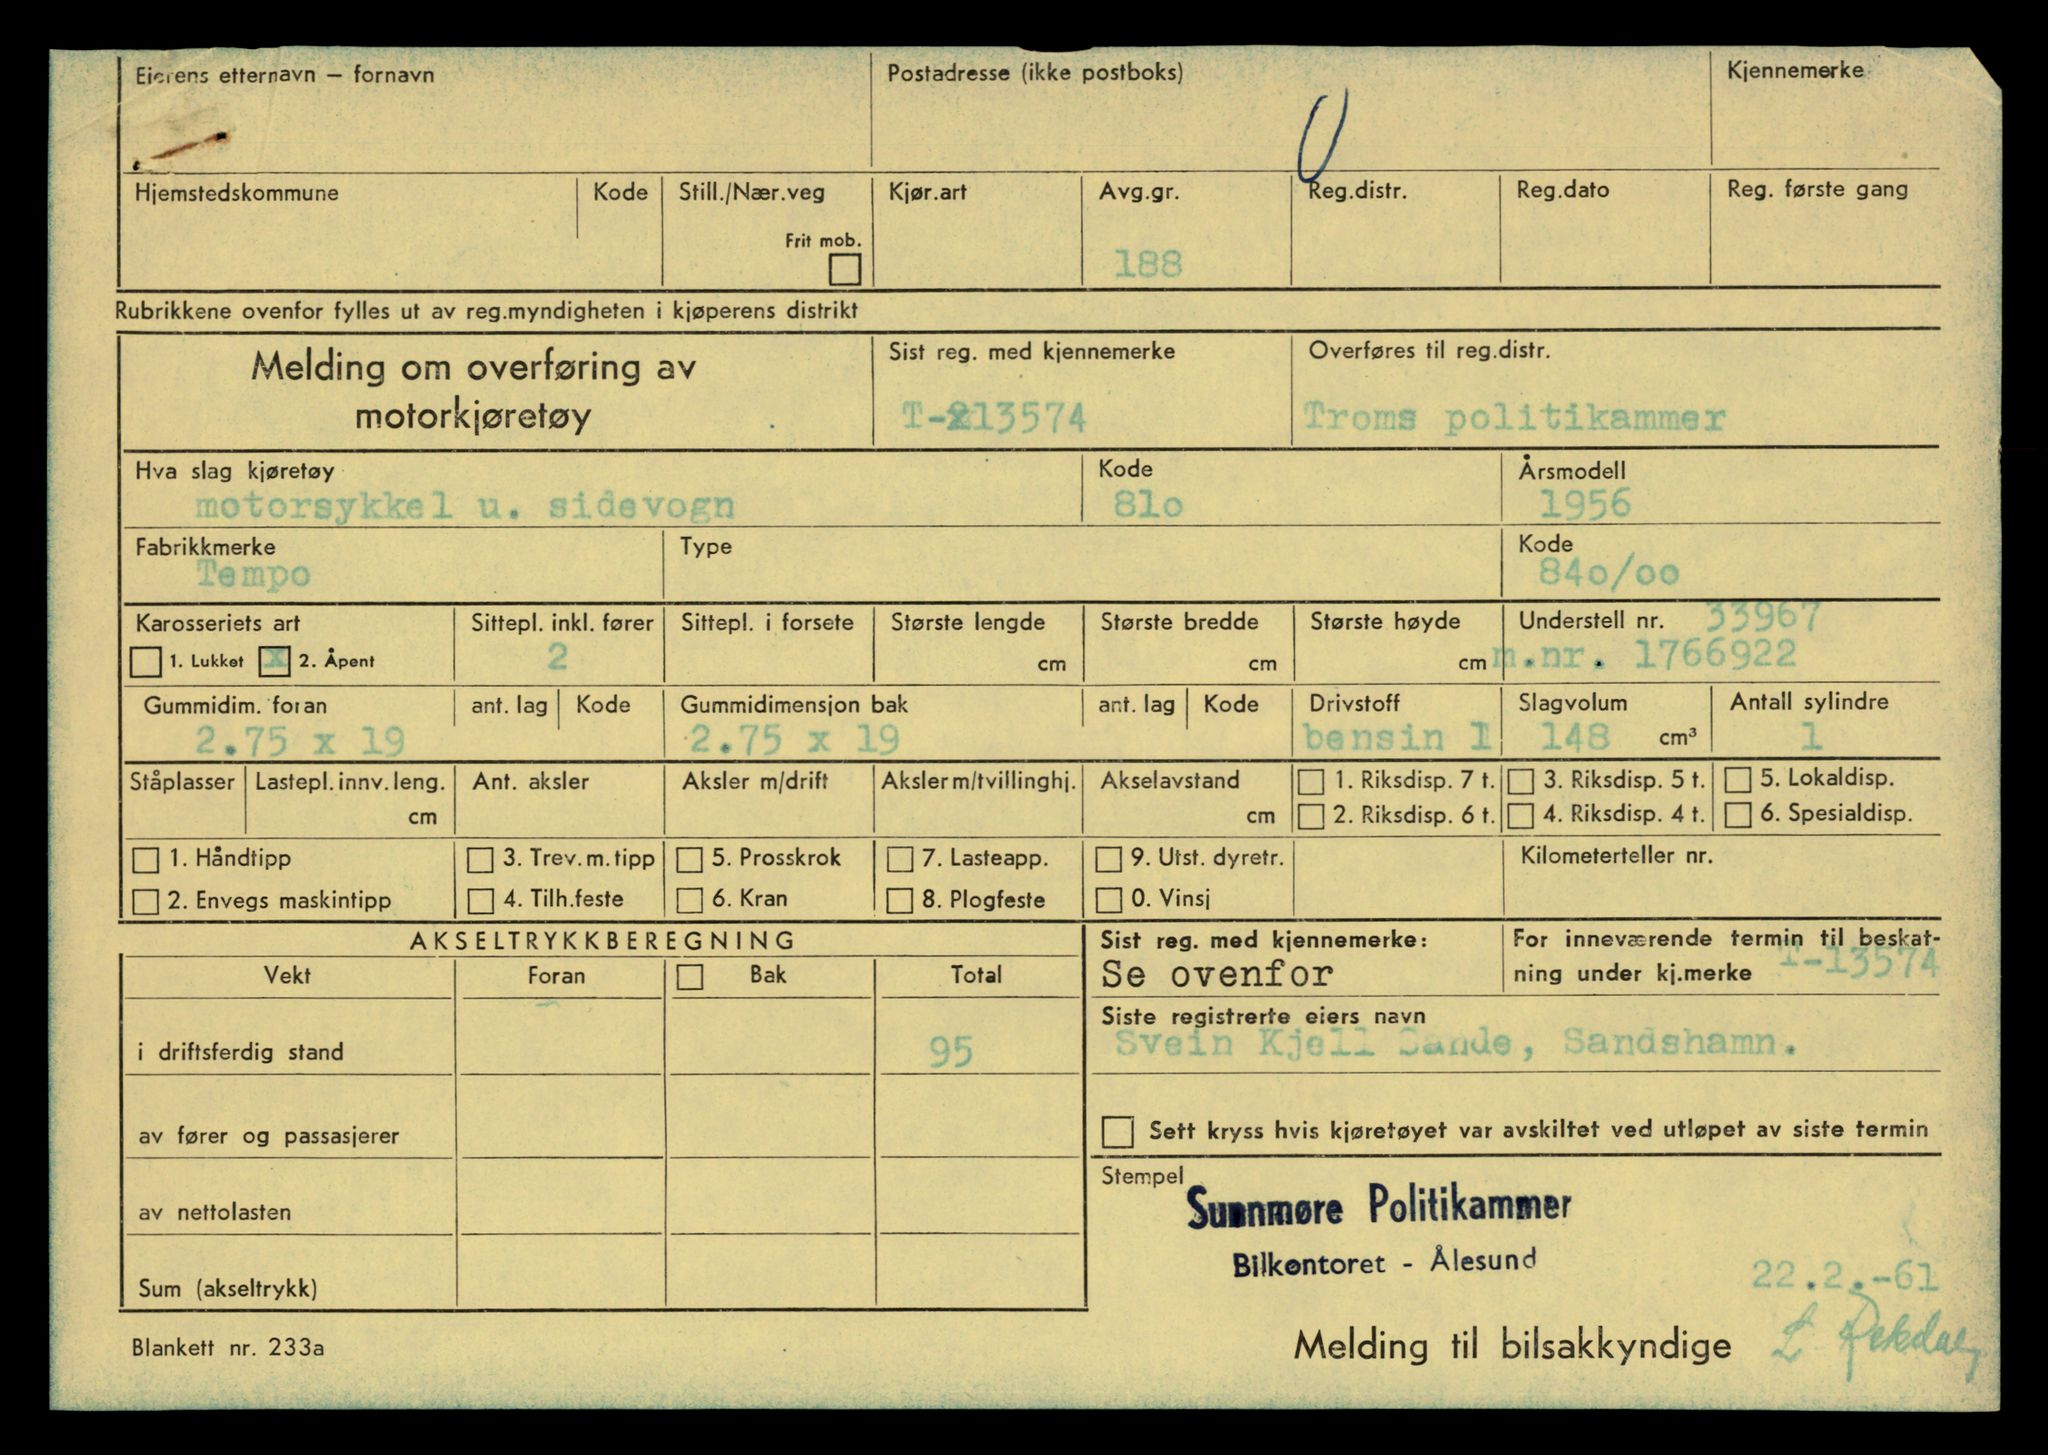 Eierens etternavn – fornavn
Postadresse (ikke postboks)
Kjennemerke
Hjemstedskommune
Kode
Still./Nær.veg
Frit mob.
Kjør.art
Avg.gr.
188
Reg.distr.
Reg.dato
Reg. første gang
Rubrikkene ovenfor fylles ut av reg.myndigheten i kjøperens distrikt
Melding om overføring av
motorkjøretøy
Sist reg. med kjennemerke
T-13574
Overføres til reg.distr.
Troms politikammer
Hva slag kjøretøy
motorsykkel u. sidevogn
Kode
81o
Årsmodell
1956
Fabrikkmerke
Tempo
Type
Kode
84o/oo
Karosseriets art
1. Lukket x 2. Åpent
Sittepl. inkl. fører
2
Sittepl. i forsete
Største lengde
cm
Største bredde
cm
Største høyde
cm
Understell nr. 33967
m.nr. 1766922
Gummidim. foran
2.75 x 19
ant. lag
Kode
Gummidimensjon bak
2.75 x 19
ant. lag
Kode
Drivstoff
bensin 1
Slagvolum
148 cm³
Antall sylindre
1
Ståplasser
Lastepl. innv. leng.
cm
Ant. aksler
Aksler m/drift
Aksler m/tvillinghj.
Akselavstand
cm
1. Riksdisp. 7 t.
2. Riksdisp. 6 t.
3. Riksdisp. 5 t.
4. Riksdisp. 4 t.
5. Lokaldisp.
6. Spesialdisp.
1. Håndtipp
2. Envegs maskintipp
3. Trev. m. tipp
4. Tilh.feste
5. Prosskrok
6. Kran
7. Lasteapp.
8. Plogfeste
9. Utst. dyretr.
0. Vinsj
Kilometerteller nr.
AKSELTRYKKBEREGNING
Vekt
Foran
Bak
Total
i driftsferdig stand
95
av fører og passasjerer
av nettolasten
Sum (akseltrykk)
Sist reg. med kjennemerke:
Se ovenfor
For inneværende termin til beskat-
ning under kj.merke T-13574
Siste registrerte eiers navn
Svein Kjell Sande, Sandshamn.
Sett kryss hvis kjøretøyet var avskiltet ved utløpet av siste termin
Stempel
Sunnmøre Politikammer
Bilkontoret - Ålesund
22.2.-61
Blankett nr. 233a
Melding til bilsakkyndige